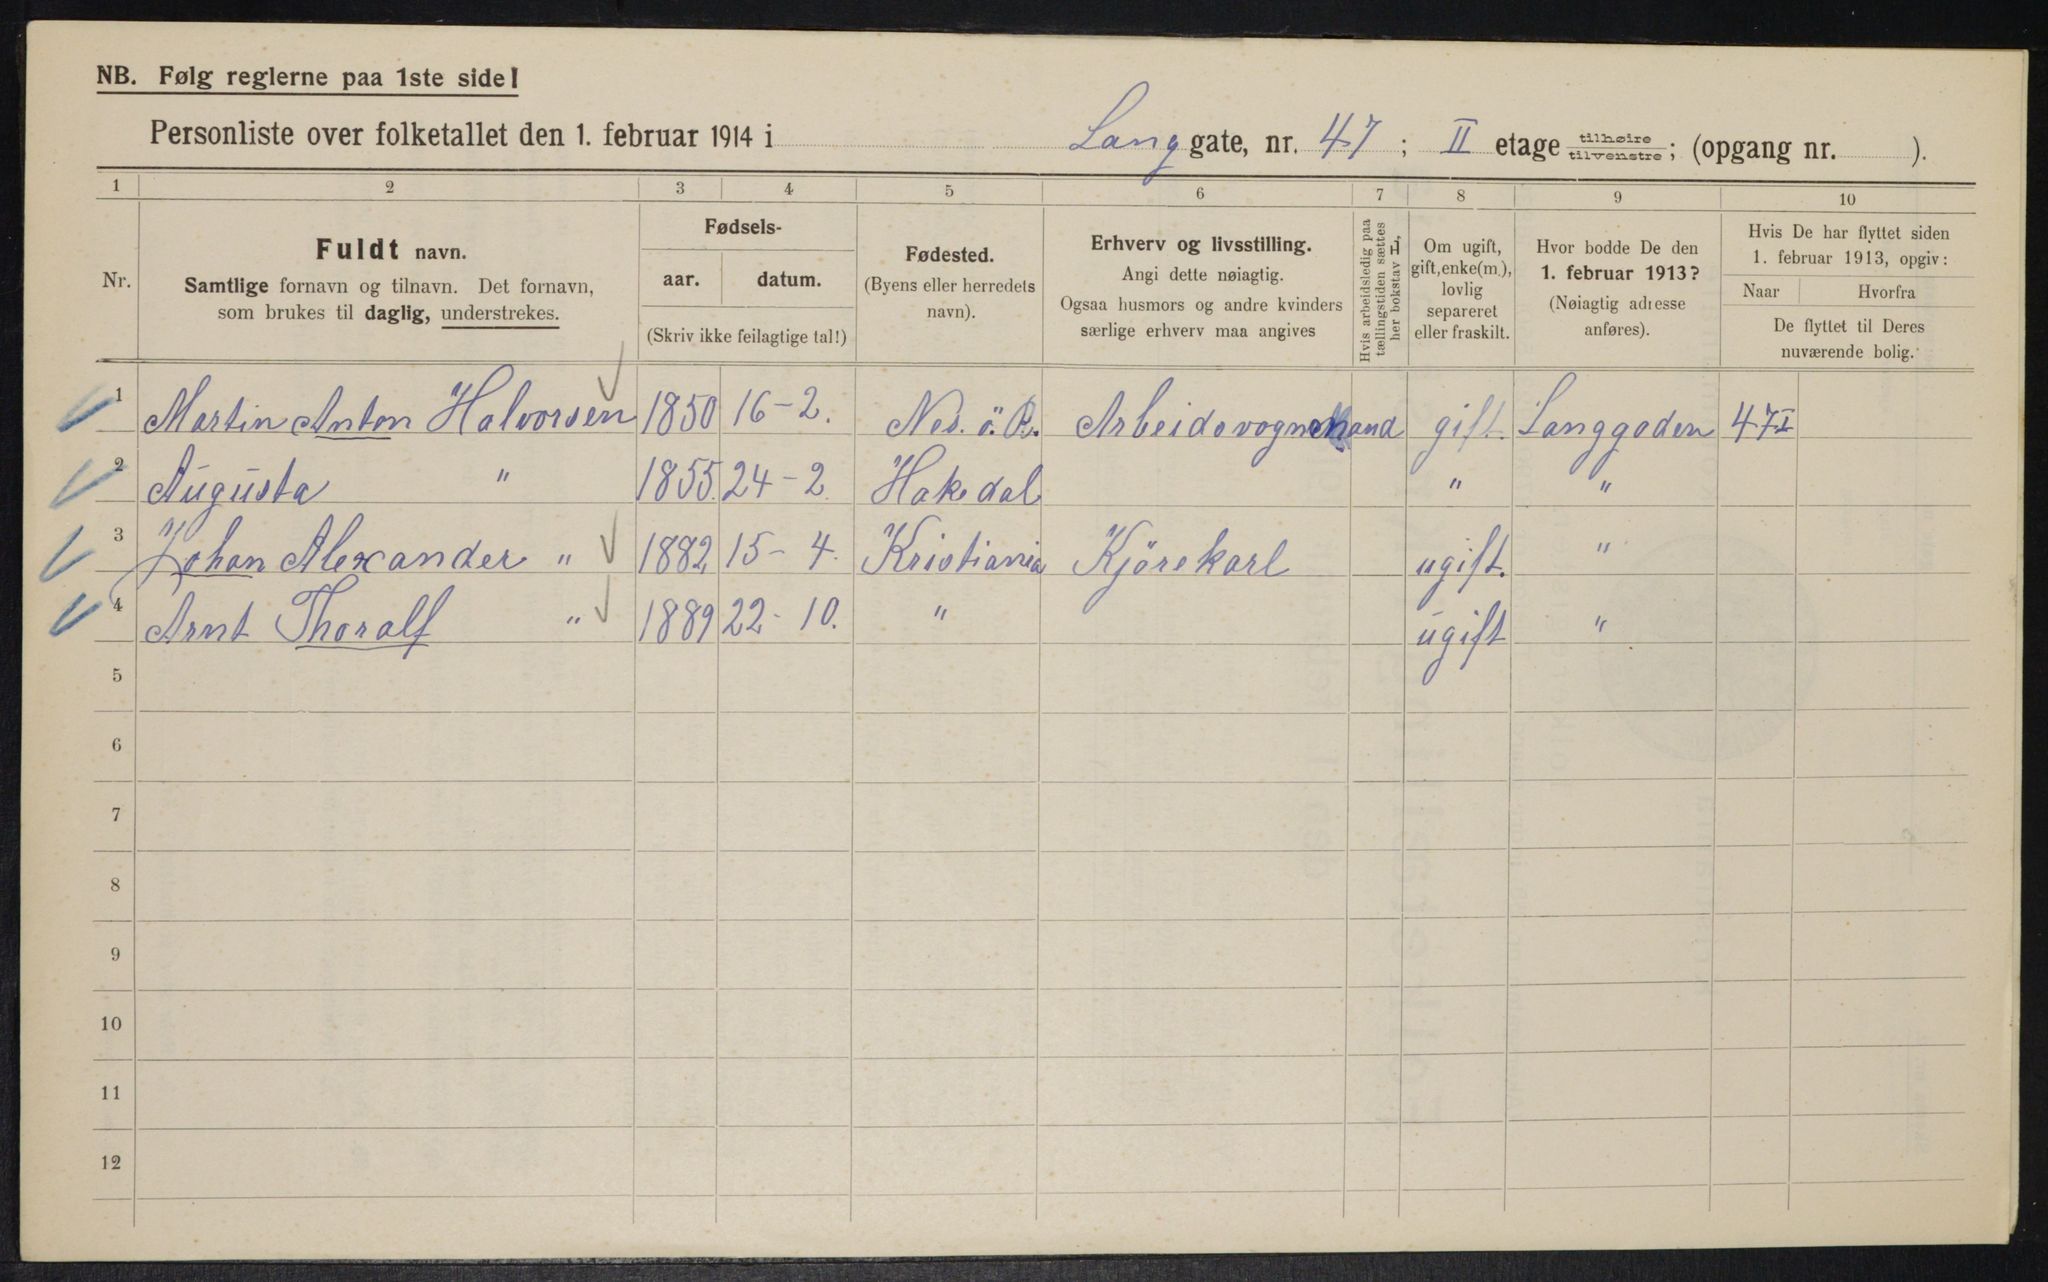 NB. Følg reglerne paa 1ste side!
Personliste over folketallet den 1. februar 1914 i Lang gate, nr. 47 ; II etage tilhøire/tilvenstre ; (opgang nr. ).
1 2 3 4 5 6 7 8 9 10
Nr.
Fuldt navn.
Samtlige fornavn og tilnavn. Det fornavn,
som brukes til daglig, understrekes.
Fødsels-
aar. datum.
(Skriv ikke feilagtige tal!)
Fødested.
(Byens eller herredets
navn).
Erhverv og livsstilling.
Angi dette nøiagtig.
Ogsaa husmors og andre kvinders
særlige erhverv maa angives
Hvis arbeidsledig paa
tællingstiden sættes
her bokstav L,
Om ugift,
gift, enke(m.),
lovlig
separeret
eller fraskilt.
Hvor bodde De den
1. februar 1913?
(Nøiagtig adresse
anføres).
Hvis De har flyttet siden
1. februar 1913, opgiv:
Naar Hvorfra
De flyttet til Deres
nuværende bolig.
1 Martin Anton Halvorsen 1850 16-2. Nes. ö. R. Arbeidsvognmand gift. Langgaden 47 I
2 Augusta " 1855. 24-2. Hakedal " "
3 Johan Alexander " 1882 15-4. Kristiania Kjörekarl ugift. "
4 Arnt Thoralf " 1889 22-10. " ugift "
5
6
7
8
9
10
11
12